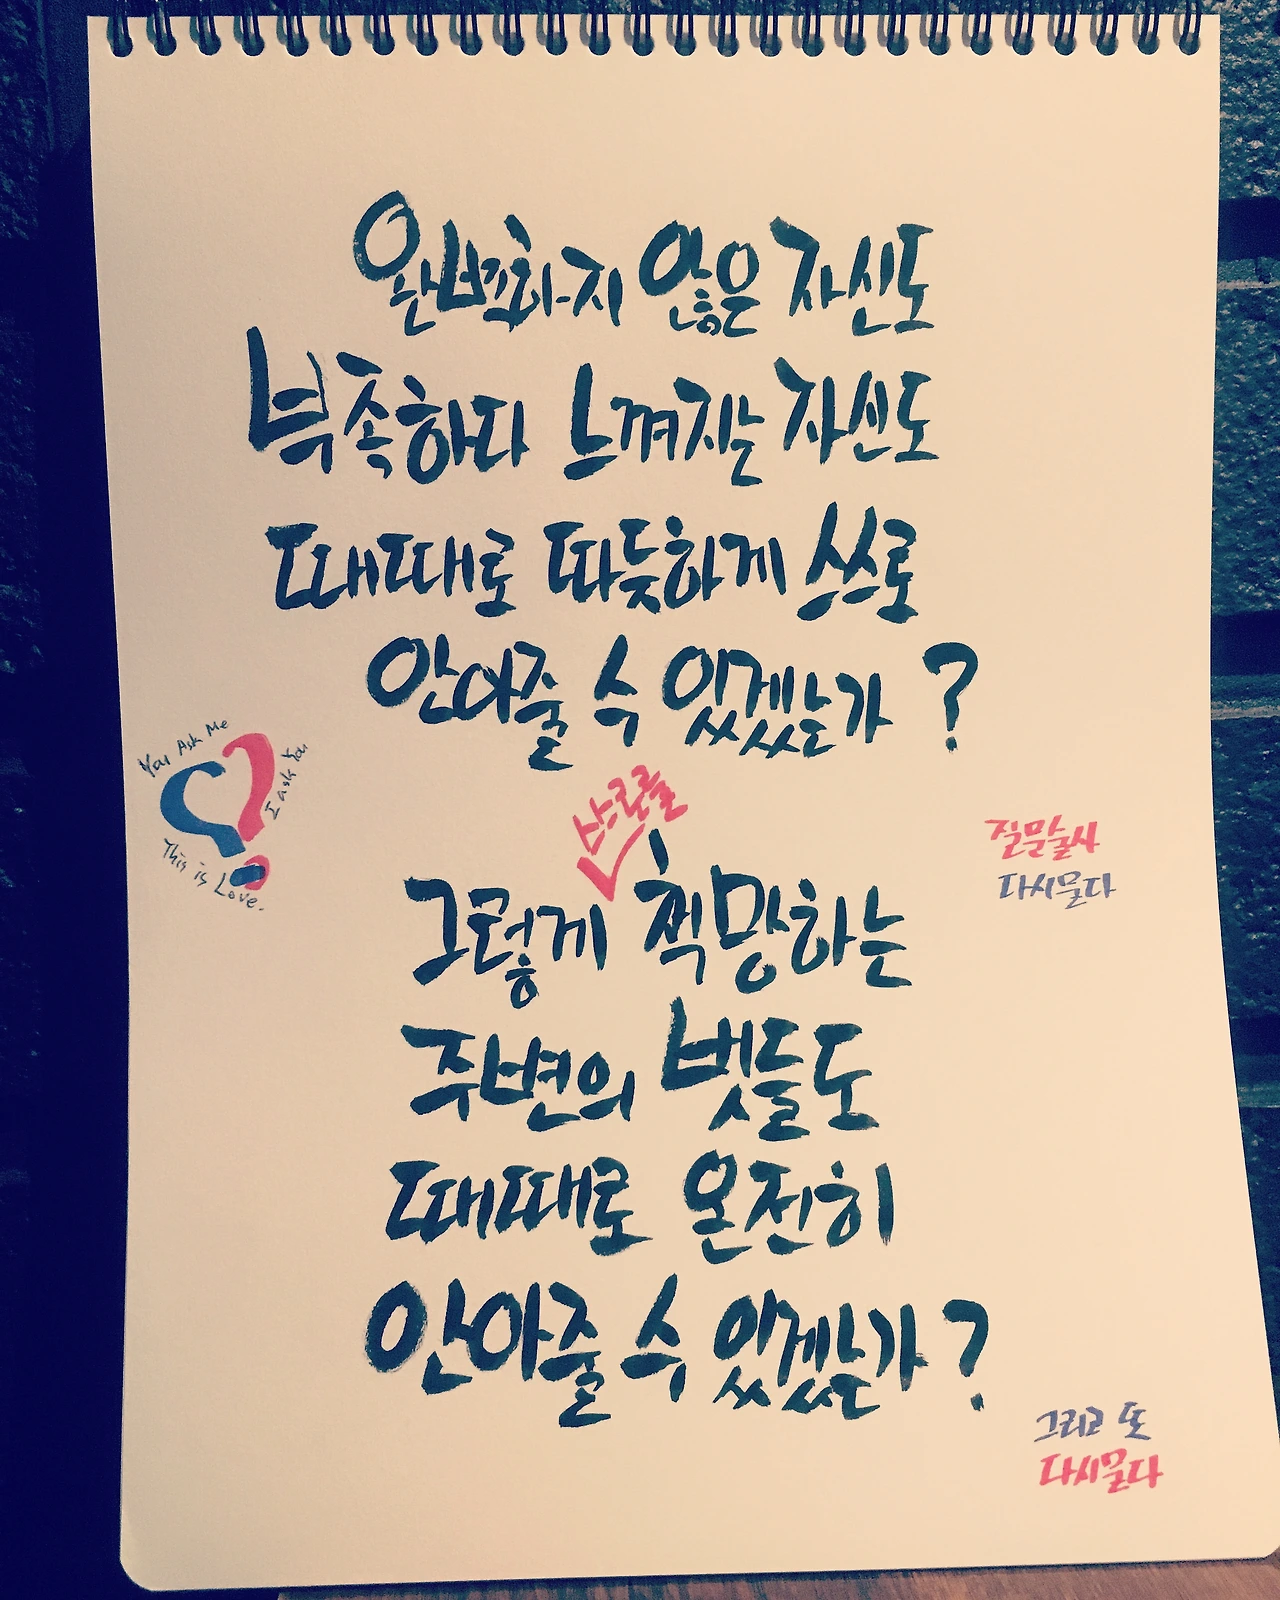 완벽하지 않은 자신도
부족하다 느껴지는 자신도
때때로 따듯하게 쓰로
안아줄 수 있겠는가?
You Ask Me
I ask You
This is Love.
질문술사
다시묻다
스스로를
그렇게 책망하는
주변의 벗들도
때때로 온전히
안아줄 수 있겠는가?
그리고 또
다시묻다